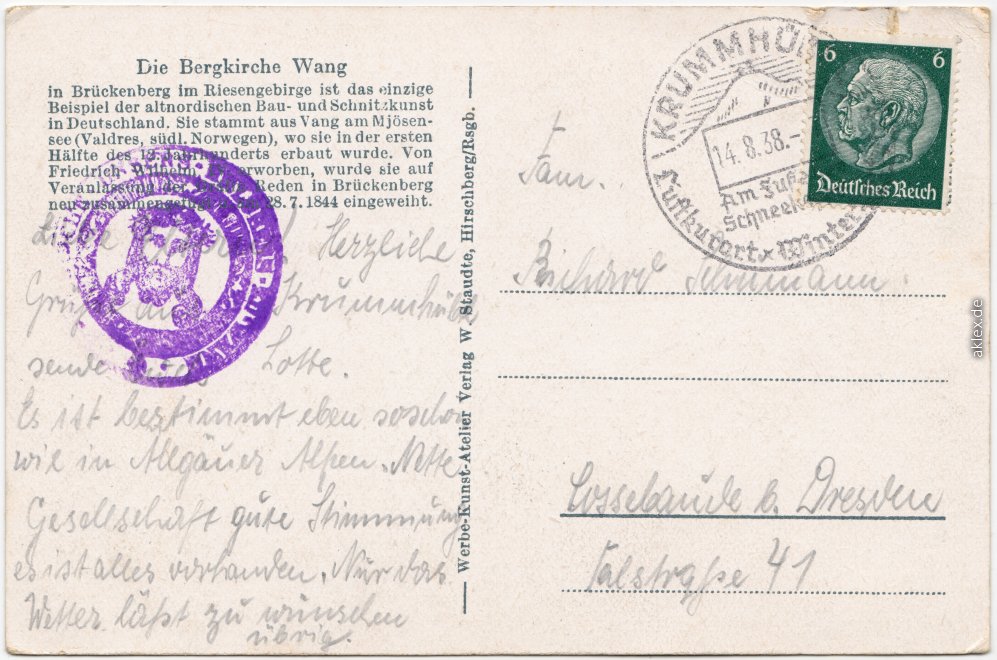 Die Bergkirche Wang
in Brückenberg im Riesengebirge ist das einzige
Beispiel der altnordischen Bau- und Schnitzkunst
in Deutschland. Sie stammt aus Vang am Mjösen-
see (Valdres, südl. Norwegen), wo sie in der ersten
Hälfte des 12. Jahrhunderts erbaut wurde. Von
Friedrich Wilhelm erworben, wurde sie auf
Veranlassung der Reden in Brückenberg
neu 28.7.1844 eingeweiht.
Herzliche
Grüße aus Krummhübel
sendet Lotte.
Es ist bestimmt eben so schön
wie in Allgäuer Alpen. Nette
Gesellschaft gute Stimmung
es ist alles vorhanden. Nur das
Wetter läßt zu wünschen
übrig.
Werbe-Kunst-Atelier Verlag W. Staudte, Hirschberg/Rsgb.
KRUMMHÜ
14.8.38.-
Am Fuße
Schneek
Luftkurort * Winter
6 6
Deutsches Reich
Fam.
Richard
Cossebaude b. Dresden
Talstraße 41
aklex.de